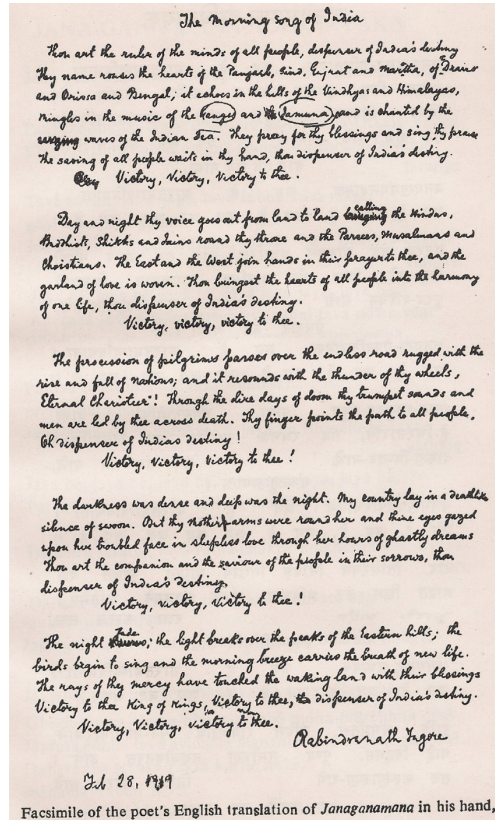 The Morning Song of India
Thou art the ruler of the minds of all people, dispenser of India's destiny
Thy name rouses the hearts of the Panjab, Sind, Gujrat and Maratha, of Dravid
and Orissa and Bengal; it echoes in the hills of the Vindhyas and Himalayas,
mingles in the music of the Ganges and the Jamuna and is chanted by the
waves of the Indian Sea. They pray for thy blessings and sing thy praise
The saving of all people waits in thy hand, thou dispenser of India's destiny.
Victory, Victory, Victory to thee.
Day and night thy voice goes out from land to land calling the Hindus,
Budhists, Shikhs and Jains round thy throne and the Parsees, Musalmans and
Christians. The East and the West join hands in their prayer to thee, and the
garland of love is woven. Thou bringest the hearts of all people into the harmony
of one life, thou dispenser of India's destiny.
Victory, victory, victory to thee.
The procession of pilgrims passes over the endless road rugged with the
rise and fall of nations; and it resounds with the thunder of thy wheels,
Eternal Charioteer! Through the dire days of doom thy trumpet sounds and
men are led by thee across death. Thy finger points the path to all people,
Oh dispenser of India's destiny!
Victory, Victory, Victory to thee!
The darkness was dense and deep was the night. My country lay in a deathlike
silence of swoon. But thy Mother arms were round her and thine eyes gazed
upon her troubled face in sleepless love through her hours of ghastly dreams
Thou art the companion and the saviour of the people in their sorrows, thou
dispenser of India's destiny
Victory, victory, victory to thee!
The night fades; the light breaks over the peaks of the Eastern hills; the
birds begin to sing and the morning breeze carries the breath of new life.
The rays of thy mercy have touched the waking land with their blessings
Victory to thee King of Kings, Victory to thee, dispenser of India's destiny.
Victory, Victory, victory to thee.
Rabindranath Tagore
Feb 28, 1919
Facsimile of the poet's English translation of Janaganamana in his hand,